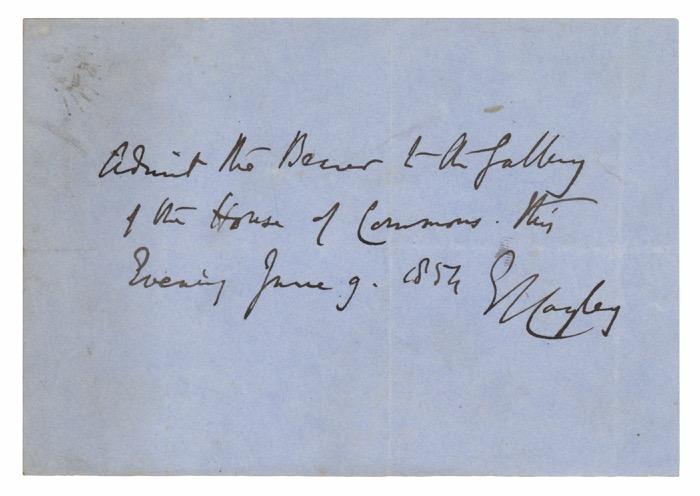 Admit the Bearer to the Gallery
of the House of Commons. this
Evening June 9. 1854 ES Cayley